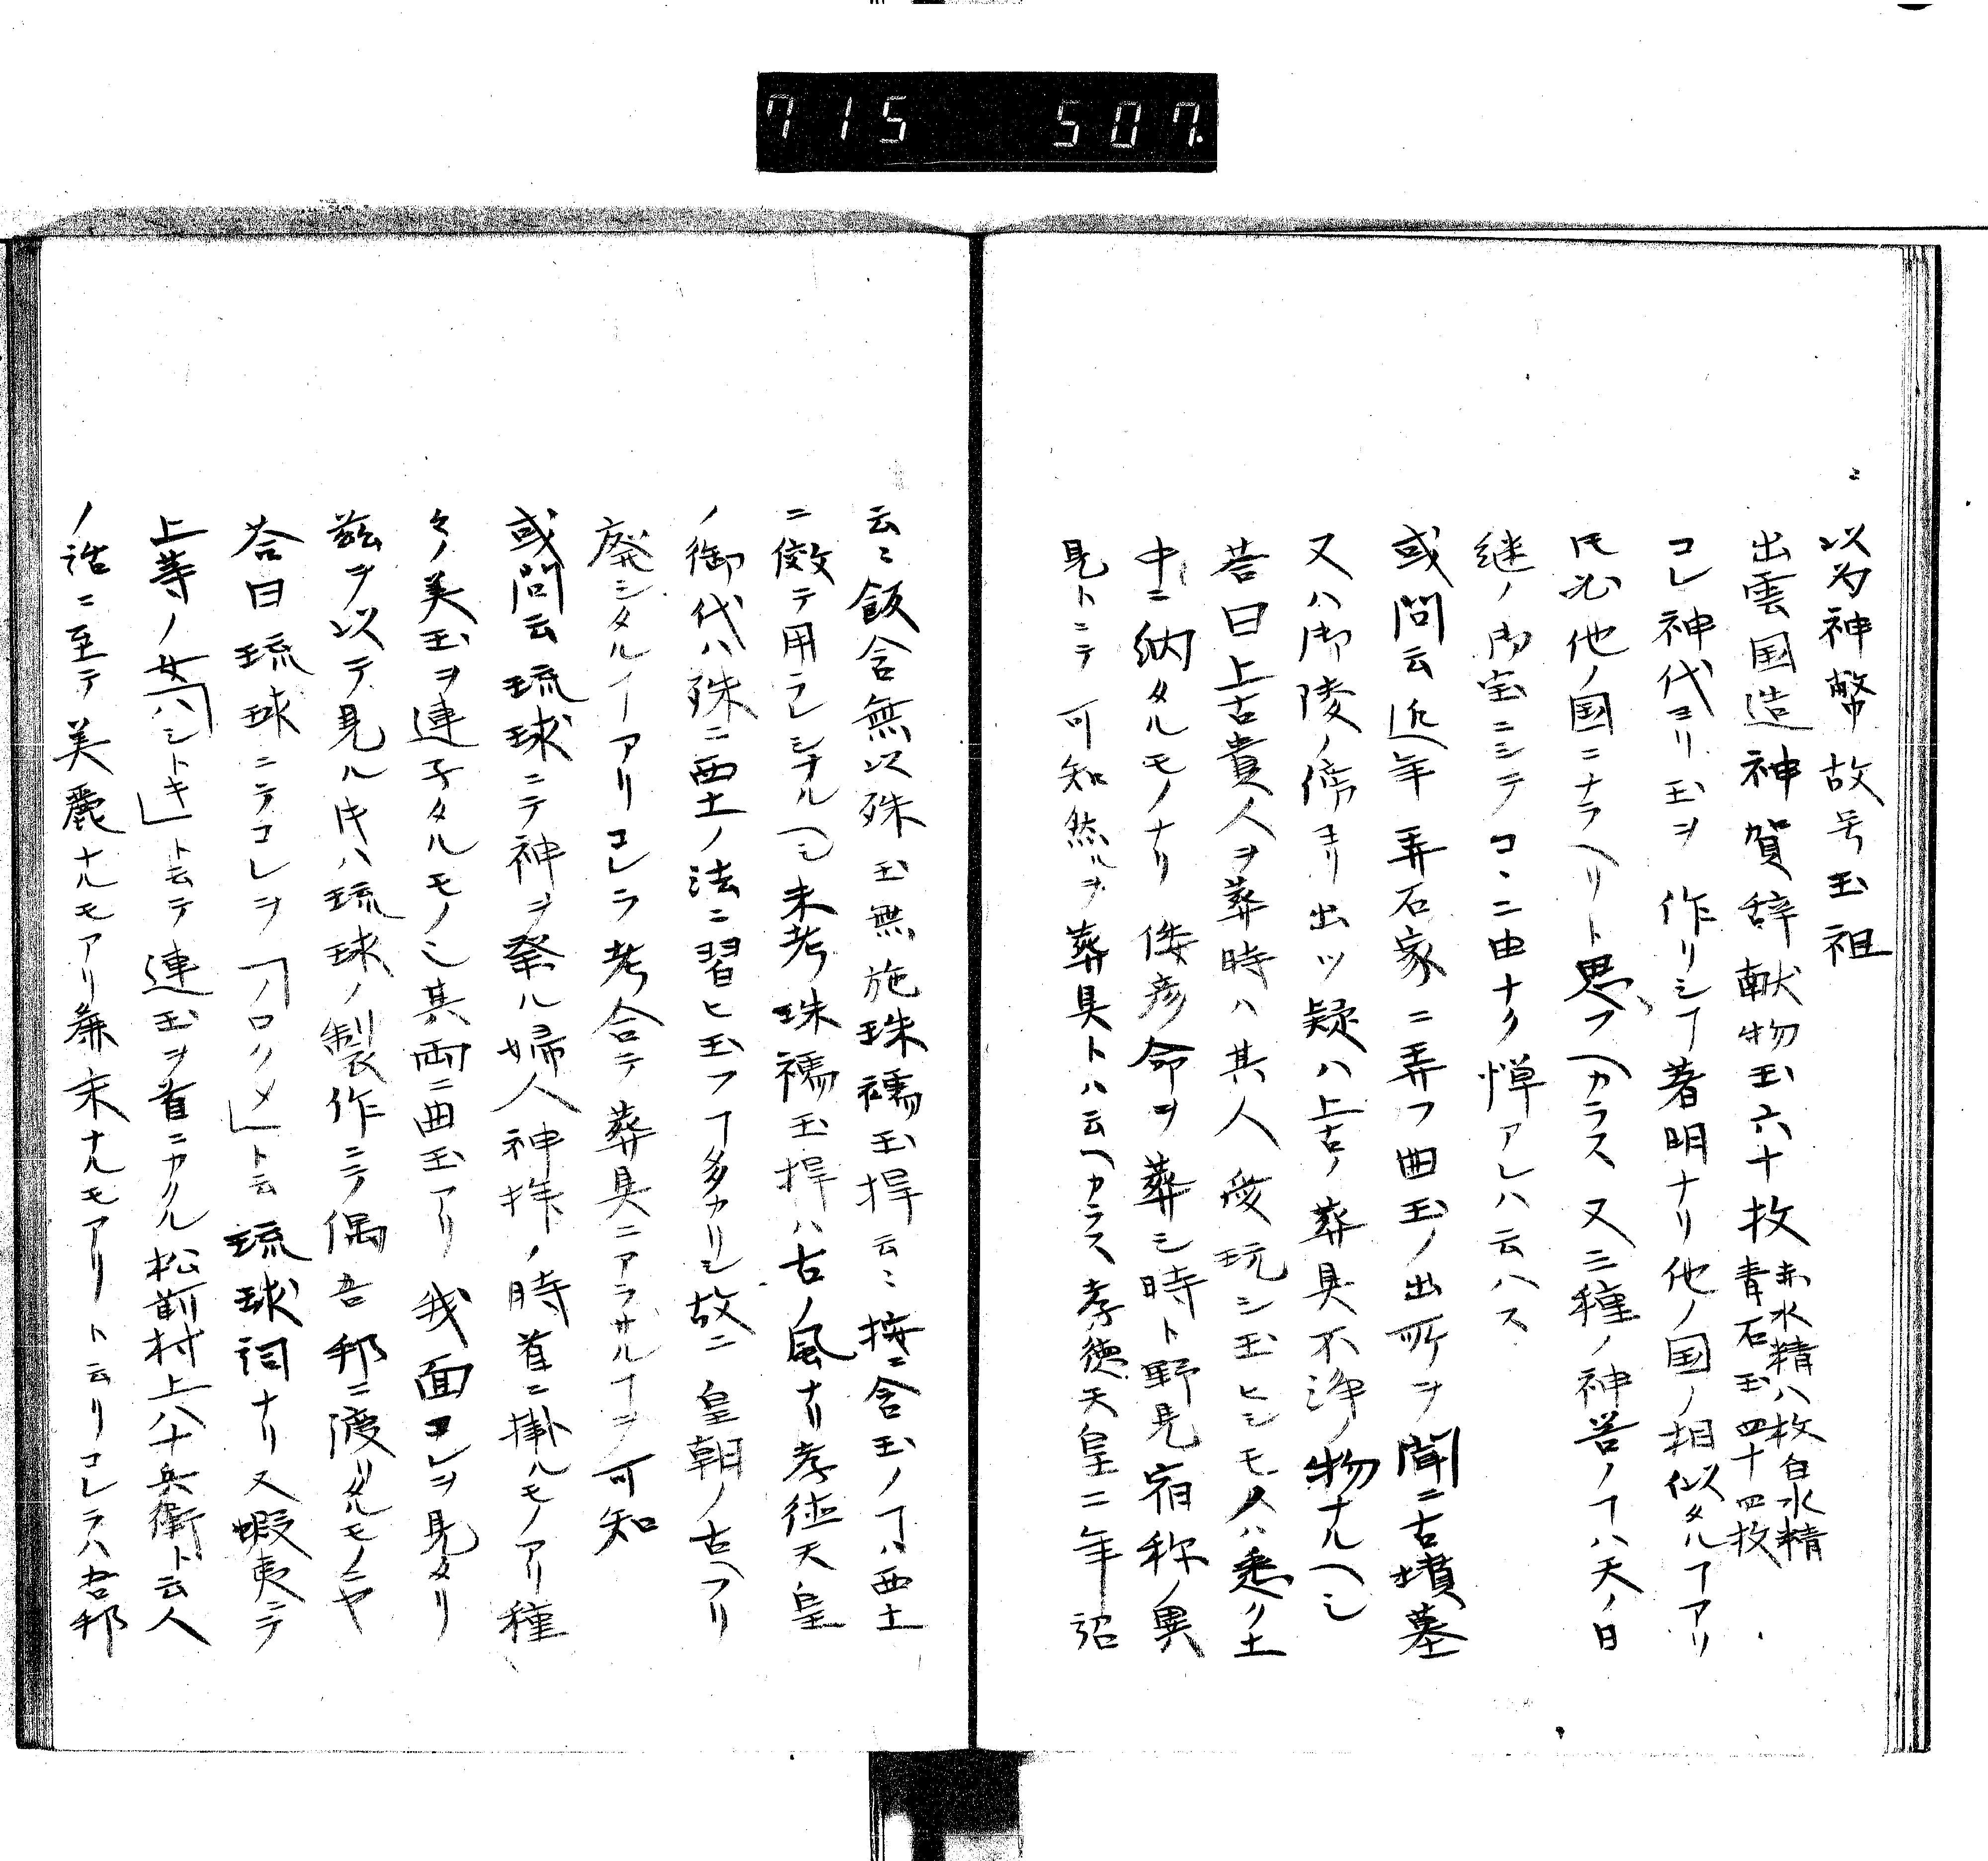 715 507
以为神幣故号玉祖
出雲国造神賀辞献物玉六十枚赤水精八枚白水精
青石玉四十四枚
コレ神代ヨリ玉ヲ作リシヿ著明ナリ他ノ国ノ相似タルヿアリ
𪜈必他ノ国ニナラヘリト思フヘカラス又三種ノ神器ノヿハ天ノ日
継ノ御宝ニシテコヽニ由ナク憚アレハ云ハス
或問云近年弄石家ニ弄フ曲玉ノ出所ヲ聞ニ古墳墓
又ハ御陵ノ傍ヨリ出ツ疑ハ上古ノ葬具不浄ノ物ナルヘシ
荅曰上古貴人ヲ葬時ハ其人愛玩シ玉ヒシモノハ悉ク土
中ニ納タルモノナリ倭彦命ヲ葬シ時ト野見宿祢ノ異
見トニテ可知然ルヲ葬具トハ云ヘカラス孝徳天皇二年詔
云〻飯含無以珠玉無施珠襦玉押云〻按ニ含玉ノヿハ西土
ニ傚テ用ラレシナルヘシ未考珠襦玉押ハ古ノ風ナリ孝徳天皇
ノ御代ハ殊ニ西土ノ法ニ習ヒ玉フヿ多カリシ故ニ皇朝ノ古ヘフリ
廃シタルイアリコレラ考合テ葬具ニアラサルヿヲ可知
或問云琉球ニテ神ヲ祭ル婦人神拝ノ時首ニ掛ルモノアリ種
々ノ美玉ヲ連子タルモノ〆其両ニ曲玉アリ我面コレヲ見タリ
茲ヲ以テ見ル𪜈ハ琉球ノ製作ニテ偶吾邦ニ渡リタルモノニヤ
荅曰琉球ニテコレヲ「ノロクメ」ト云琉球詞ナリ又蝦夷ニテ
上等ノ女「ハシトキ」ト云テ連玉ヲ首ニカクル松前村上八十兵衛ト云人
ノ話ニ至テ美麗ナルモアリ麁末ナルモアリト云リコレラハ吾邦